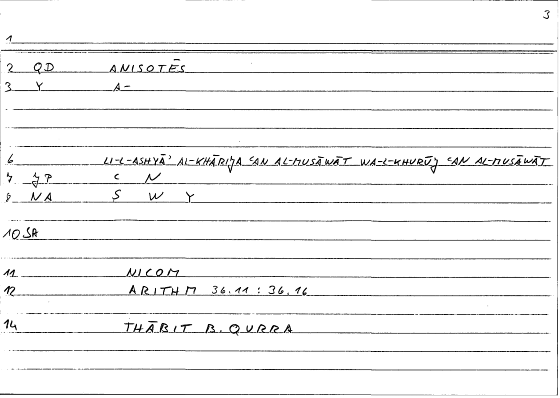 3
1
2 QD ANISOTĒS
3 Y A-
6 LI-L-ASHYĀ' AL-KHĀRIJA ʿAN AL-MUSĀWĀT WA-L-KHURŪJ ʿAN AL-MUSĀWĀT
7 JP C N
8 NA Ṣ W Y
10 SA
11 NICOM
12 ARITHM 36.11 : 36.16
14 THĀBIT B. QURRA